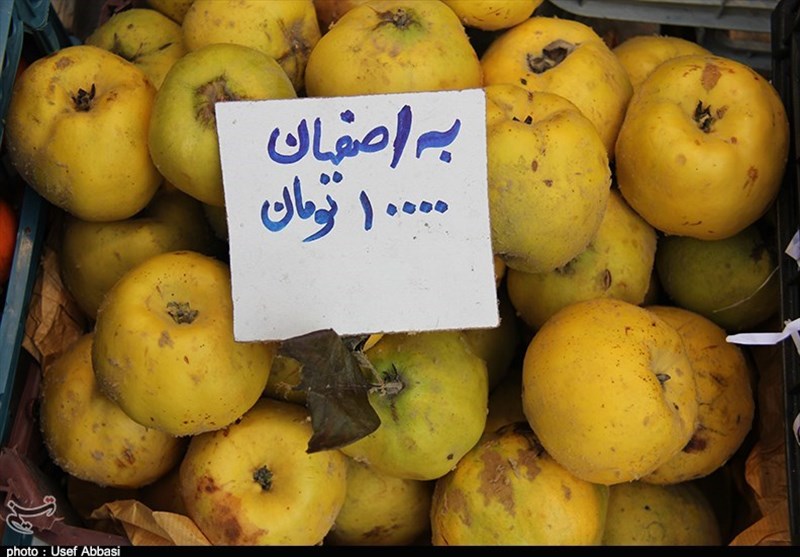 به اصفهان
۱۰۰۰۰۰ تومان
تسنیم
photo : Usef Abbasi